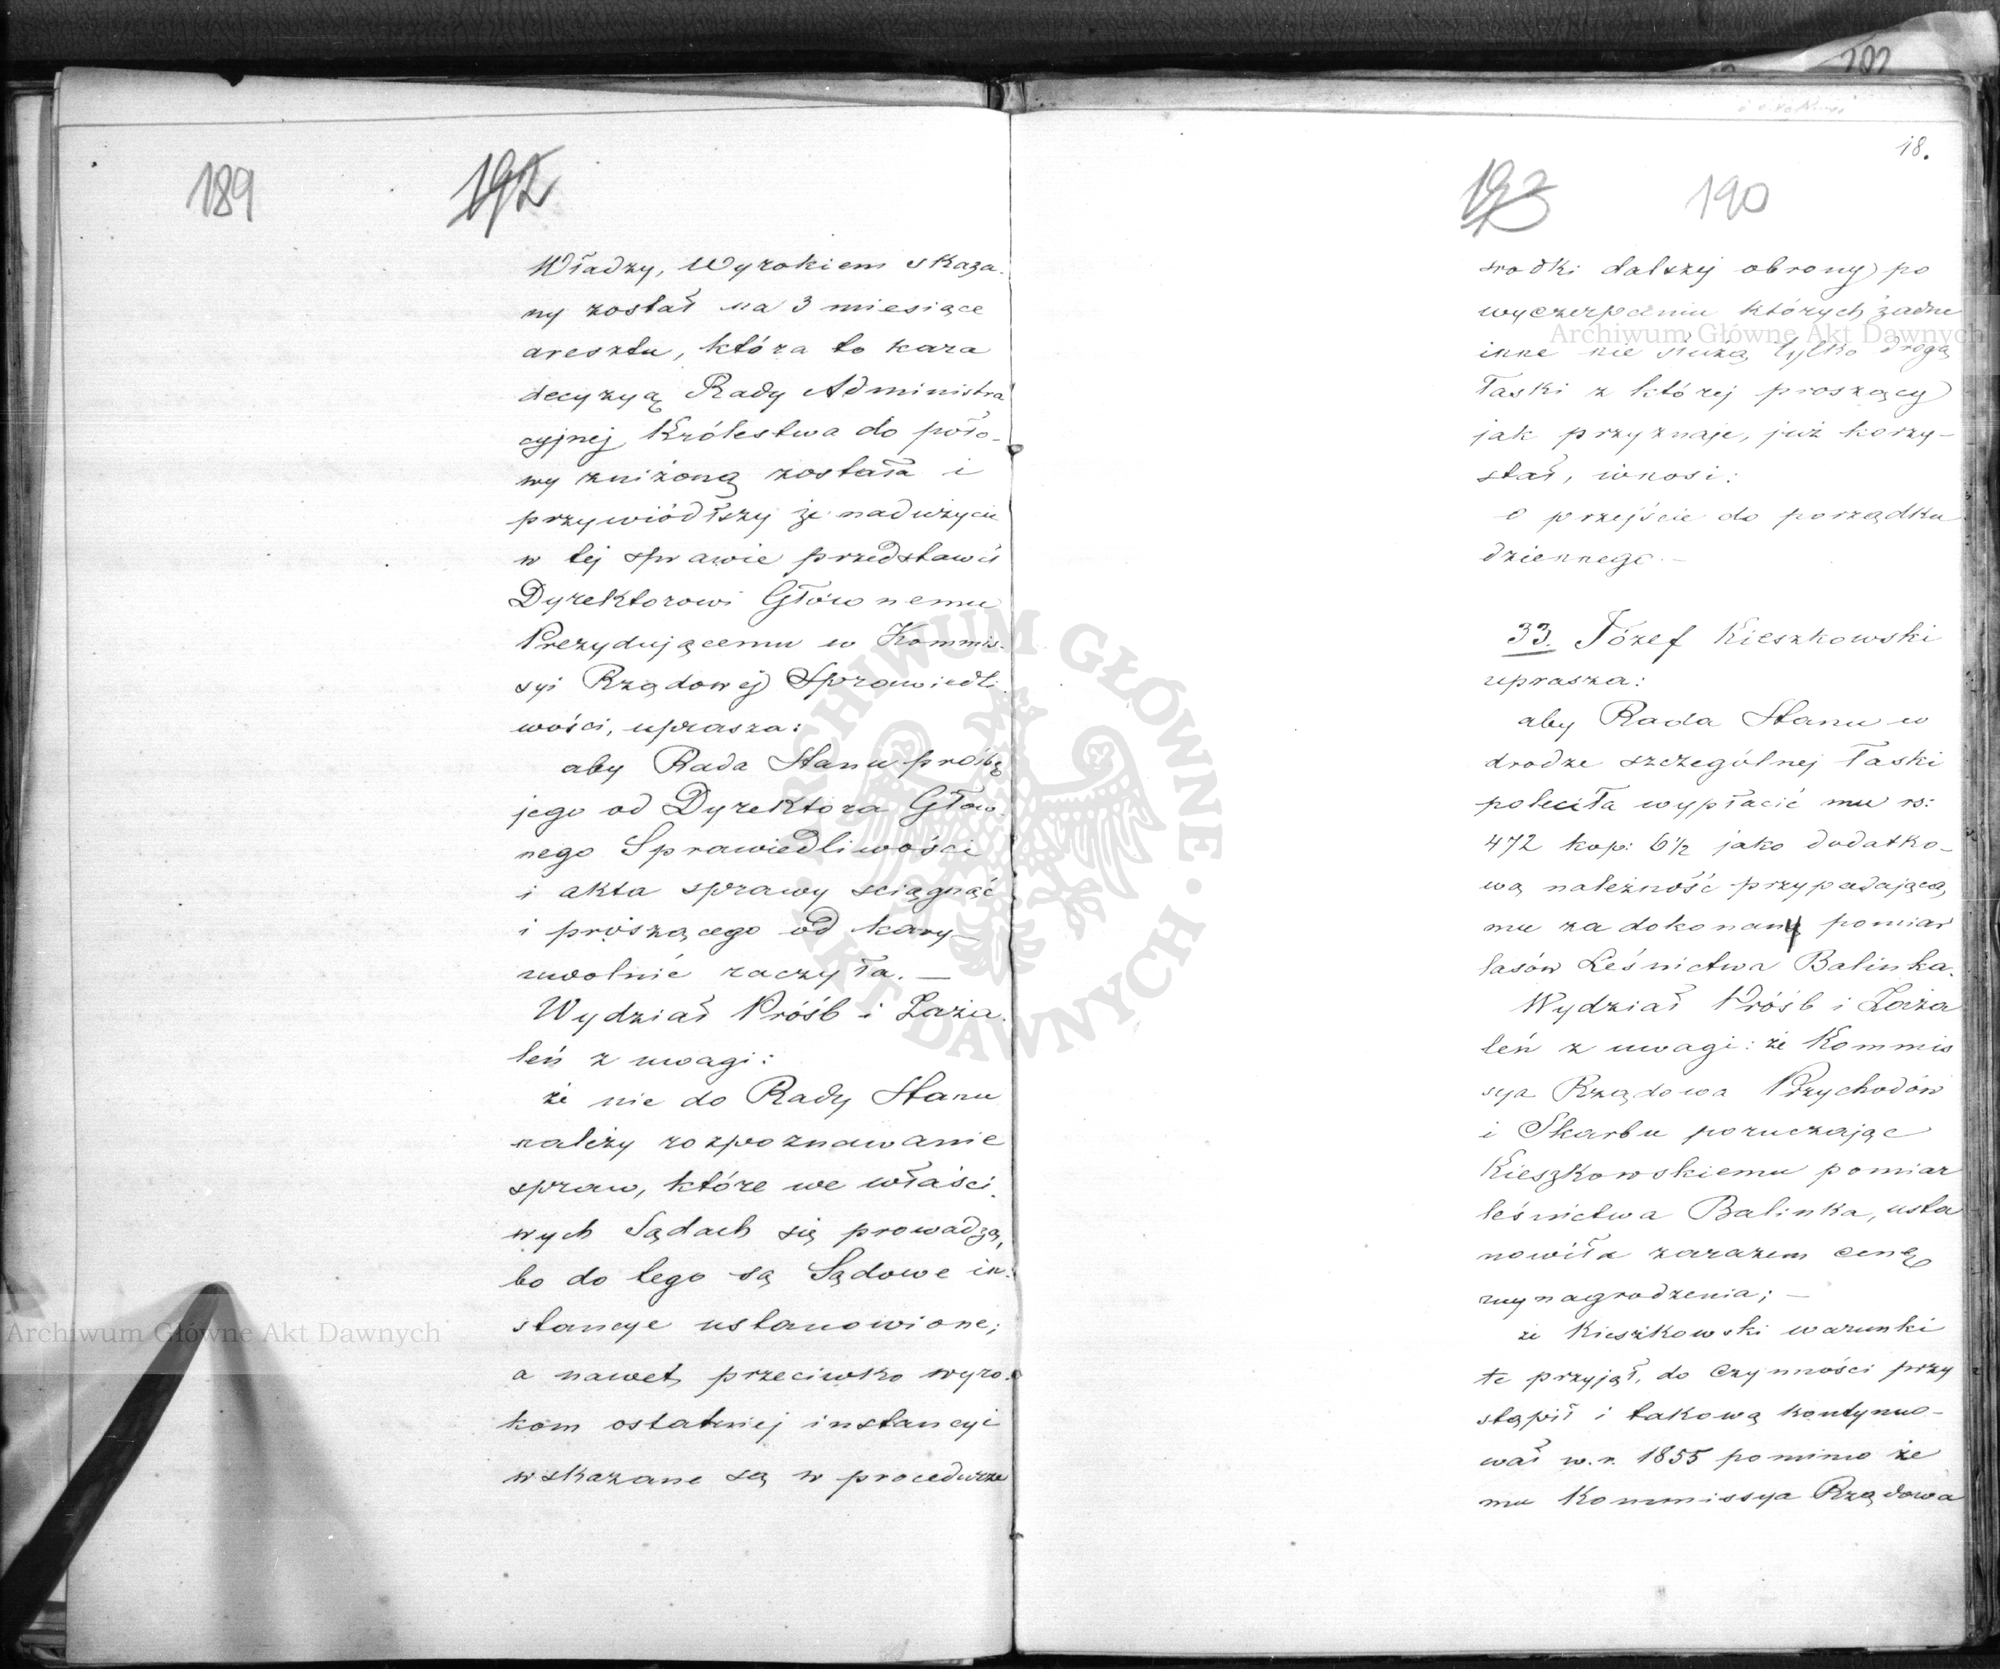 189
192
Władzy, Wyrokiem skaza-
ny został na 3 miesiące
aresztu, która to kara
decyzyą Rady Administra
cyjnej Królestwa do poło-
wy zniżoną została i
przywiódłszy że nadużycie
w tej sprawie przedstawił
Dyrektorowi Głównemu
Prezydującemu w Kommis-
syi Rządowej Sprawiedli
wości, uprasza:
aby Rada Stanu prośbę
jego od Dyrektora Głów-
nego Sprawiedliwości
i akta sprawy sciągnąć
i proszącego od kary
uwolnić raczyła. —
Wydział Próśb i Zaża-
leń z uwagi:
że nie do Rady Stanu
należy rozpoznawanie
spraw, które we właści-
wych Sądach się prowadzą,
bo do tego są Sądowe in-
stancye ustanowione;
a nawet przeciwko wyro-
kom ostatniej instancyi
wskazane są w procedurze
202
18.
193
190
srodki dalszej obrony po
wyczerpaniu których żadne
inne nie służą tylko droga
łaski z której proszący
jak przyznaje, już korzy-
stał, wnosi:
o przejście do porządku
dziennego. —
33. Józef Kieszkowski
uprasza:
aby Rada Stanu w
drodze szczególnej łaski
poleciła wypłacić mu rs:
472 kop: 6½ jako dodatko-
wą należność przypadającą
mu za dokonany pomiar
lasów Leśnictwa Balinka.
Wydział Próśb i Zaża
leń z uwagi: że Kommis
sya Rządowa Przychodów
i Skarbu poruczając
Kieszkowskiemu pomiar
leśnictwa Balinka, usta
nowiła zarazem cenę
wynagrodzenia; —
że Kieszkowski warunki
te przyjął, do czynności przy
stąpił i takową kontynuo-
wał w r. 1855 pomimo że
mu Kommissya Rządowa
Archiwum Główne Akt Dawnych
Archiwum Główne Akt Dawnych
ARCHIWUM GŁÓWNE AKT DAWNYCH